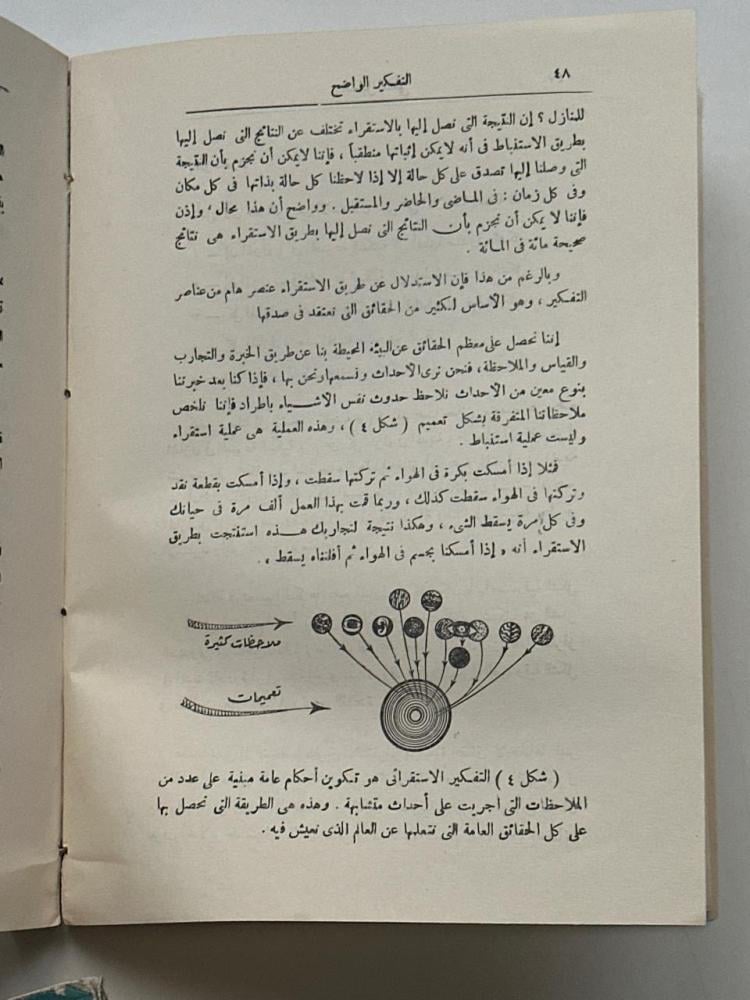 ٤٨
التفكير الواضح
للمنازل ؟ إن النتيجة التى نصل إليها بالاستقراء تختلف عن النتائج التى نصل إليها
بطريق الاستنباط فى أنه لا يمكن إثباتها منطقياً ، فإننا لا يمكن أن نجزم بأن النتيجة
التى وصلنا إليها تصدق على كل حالة إلا إذا لاحظنا كل حالة بذاتها فى كل مكان
وفى كل زمان : فى الماضى والحاضر والمستقبل . وواضح أن هذا محال ، وإذن
فإننا لا يمكن أن نجزم بأن النتائج التى نصل إليها بطريق الاستقراء هى نتائج
صحيحة مائة فى المائة .
وبالرغم من هذا فإن الاستدلال عن طريق الاستقراء عنصر هام من عناصر
التفكير ، وهو الأساس لكثير من الحقائق التى نعتقد فى صدقها
إننا نحصل على معظم الحقائق عن البيئة المحيطة بنا عن طريق الخبرة والتجارب
والقياس والملاحظة ، فنحن نرى الأحداث ونسمعها ونحن بها ، فإذا كنا بعد خبرتنا
بنوع معين من الأحداث نلاحظ حدوث نفس الأشياء باطراد فإننا نلخص
ملاحظاتنا المتفرقة بشكل تعميم ( شكل ٤ ) ، وهذه العملية هى عملية استقراء
وليست عملية استنباط .
فمثلا إذا أمسكت بكرة فى الهواء ثم تركتها سقطت ، وإذا أمسكت بقطعة نقد
وتركتها فى الهواء سقطت كذلك ، وربما قمت بهذا العمل ألف مرة فى حياتك
وفى كل مرة يسقط الشىء ، وهكذا نتيجة لتجاربك هذه استنتجت بطريق
الاستقراء أنه « إذا أمسكنا بجسم فى الهواء ثم أفلتناه يسقط » .
ملاحظات كثيرة
تعميمات
( شكل ٤ ) التفكير الاستقرائى هو تكوين أحكام عامة مبنية على عدد من
الملاحظات التى اجريت على أحداث متشابهة . وهذه هى الطريقة التى نحصل بها
على كل الحقائق العامة التى نتعلمها عن العالم الذى نعيش فيه .